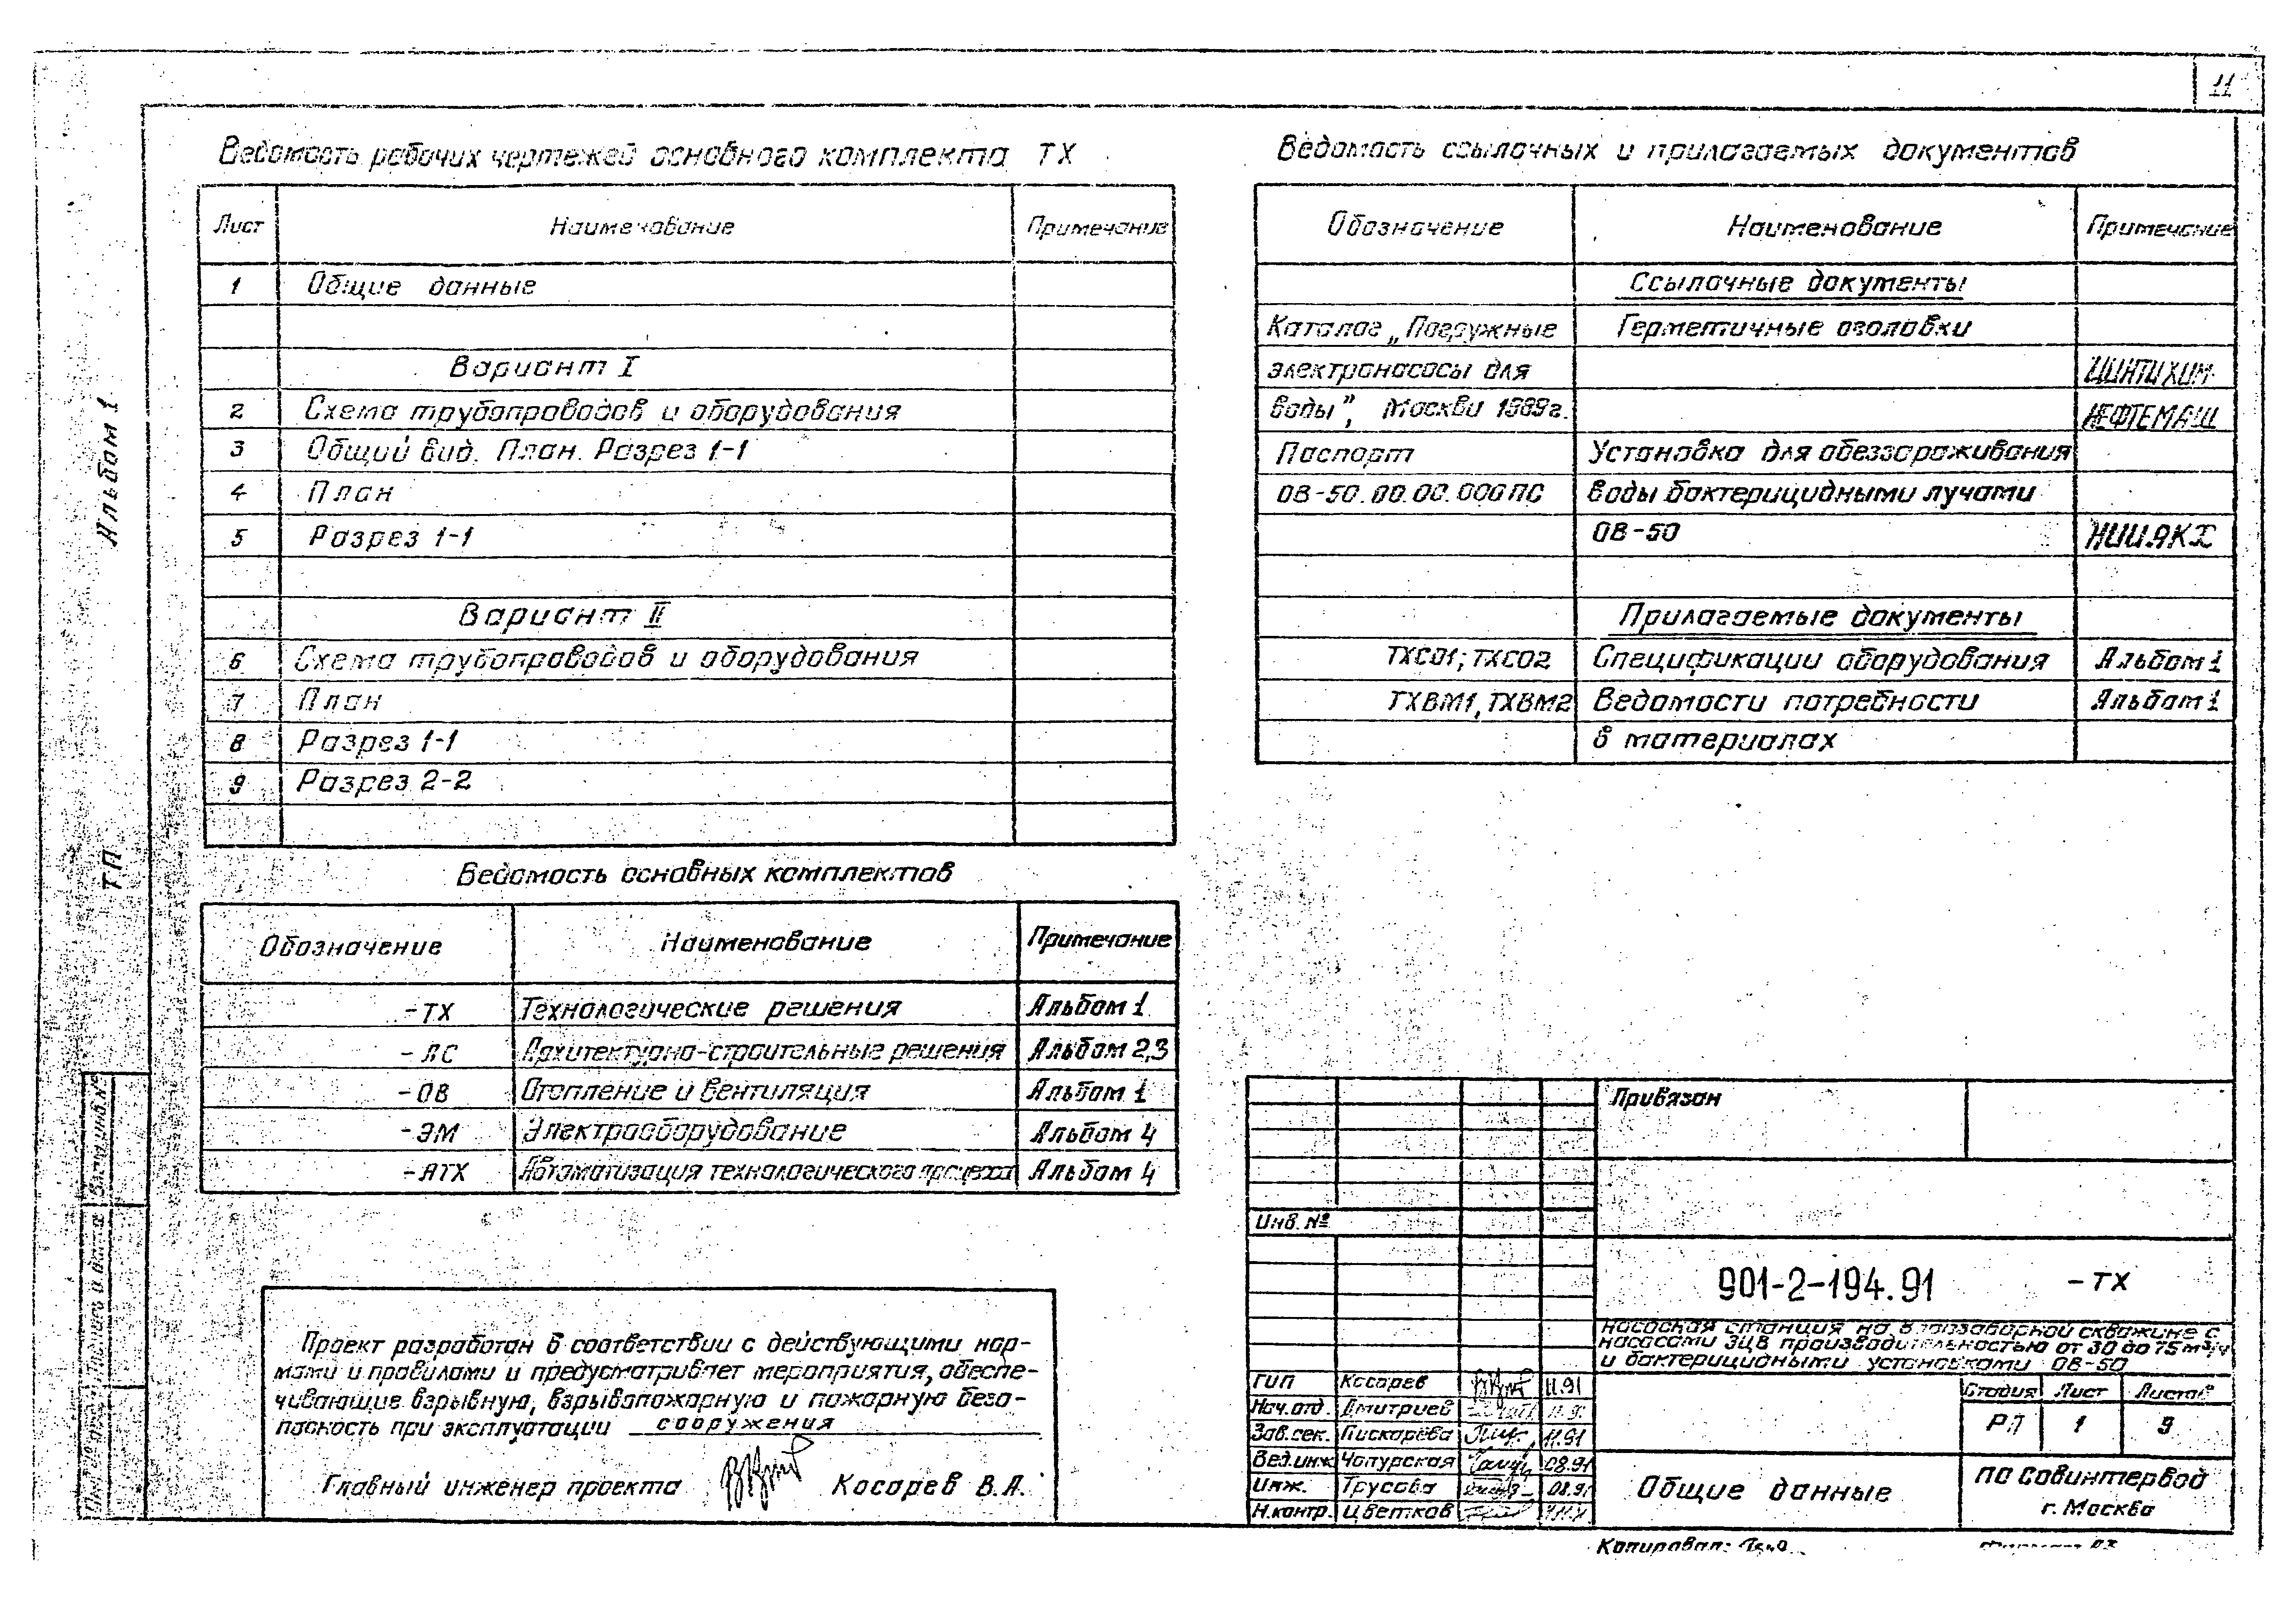 11
Ведомость рабочих чертежей основного комплекта ТХ
Лист Наименование Примечание
1 Общие данные
Вариант I
2 Схема трубопроводов и оборудования
3 Общий вид. План. Разрез 1-1
4 План
5 Разрез 1-1
Вариант II
6 Схема трубопроводов и оборудования
7 План
8 Разрез 1-1
9 Разрез 2-2
Ведомость основных комплектов
Обозначение Наименование Примечание
-ТХ Технологические решения Альбом 1
-АС Архитектурно-строительные решения Альбом 2,3
-ОВ Отопление и вентиляция Альбом 1
-ЭМ Электрооборудование Альбом 4
-АТХ Автоматизация технологического процесса Альбом 4
Проект разработан в соответствии с действующими нор-
мами и правилами и предусматривает мероприятия, обеспе-
чивающие взрывную, взрывопожарную и пожарную безо-
пасность при эксплуатации сооружения
Главный инженер проекта Косарев В.А.
Ведомость ссылочных и прилагаемых документов
Обозначение Наименование Примечание
Ссылочные документы
Каталог „Погружные Герметичные оголовки
электронасосы для ЦИНТИХИМ-
воды”, Москва 1989г. НЕФТЕМАШ
Паспорт Установка для обеззараживания
ОВ-50.00.00.000ПС воды бактерицидными лучами
ОВ-50 НИИ АКХ
Прилагаемые документы
ТХСО1; ТХСО2 Спецификации оборудования Альбом 1
ТХВМ1, ТХВМ2 Ведомости потребности Альбом 1
в материалах
Привязан
Инв. №
901-2-194.91 -ТХ
Насосная станция на водозаборной скважине с
насосами ЭЦВ производительностью от 30 до 75 м³/ч
и бактерицидными установками ОВ-50
ГИП Косарев 11.91
Нач. отд. Дмитриев
Зав. сек. Пискарёва 11.91
Вед. инж. Чапурская 08.91
Инж. Трусова 08.91
Н. контр. Цветков
Стадия Лист Листов
РП 1 9
Общие данные
ПО Совинтервод
г. Москва
Копировал:
Альбом 1
ТП
Взам. инв. №
Подпись и дата